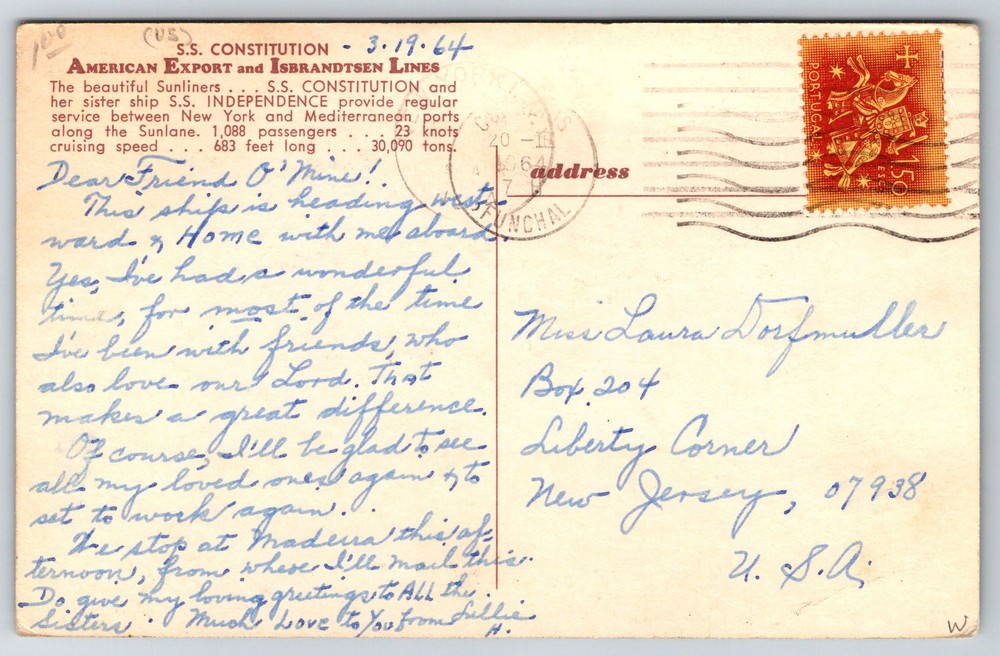 1.00
(US)
S.S. CONSTITUTION - 3.19.64
AMERICAN EXPORT and ISBRANDTSEN LINES
The beautiful Sunliners . . . S.S. CONSTITUTION and
her sister ship S.S. INDEPENDENCE provide regular
service between New York and Mediterranean ports
along the Sunlane. 1,088 passengers . . . 23 knots
cruising speed . . . 683 feet long . . . 30,090 tons.
Dear Friend O' Mine!
This ship is heading west-
ward & HOME with me aboard.
Yes, I've had a wonderful
time, for most of the time
I've been with friends, who
also love our Lord. That
makes a great difference.
Of course, I'll be glad to see
all my loved ones again & to
set to work again...
We stop at Madeira this af-
ternoon, from where I'll mail this.
Do give my loving greetings to ALL the
Sisters. Much Love to You from Lillie
H.
20 -
1964
FUNCHAL
address
PORTUGAL
1$50
Miss Laura Dorfmuller
Box 204
Liberty Corner
New Jersey, 07938
U. S. A.
W